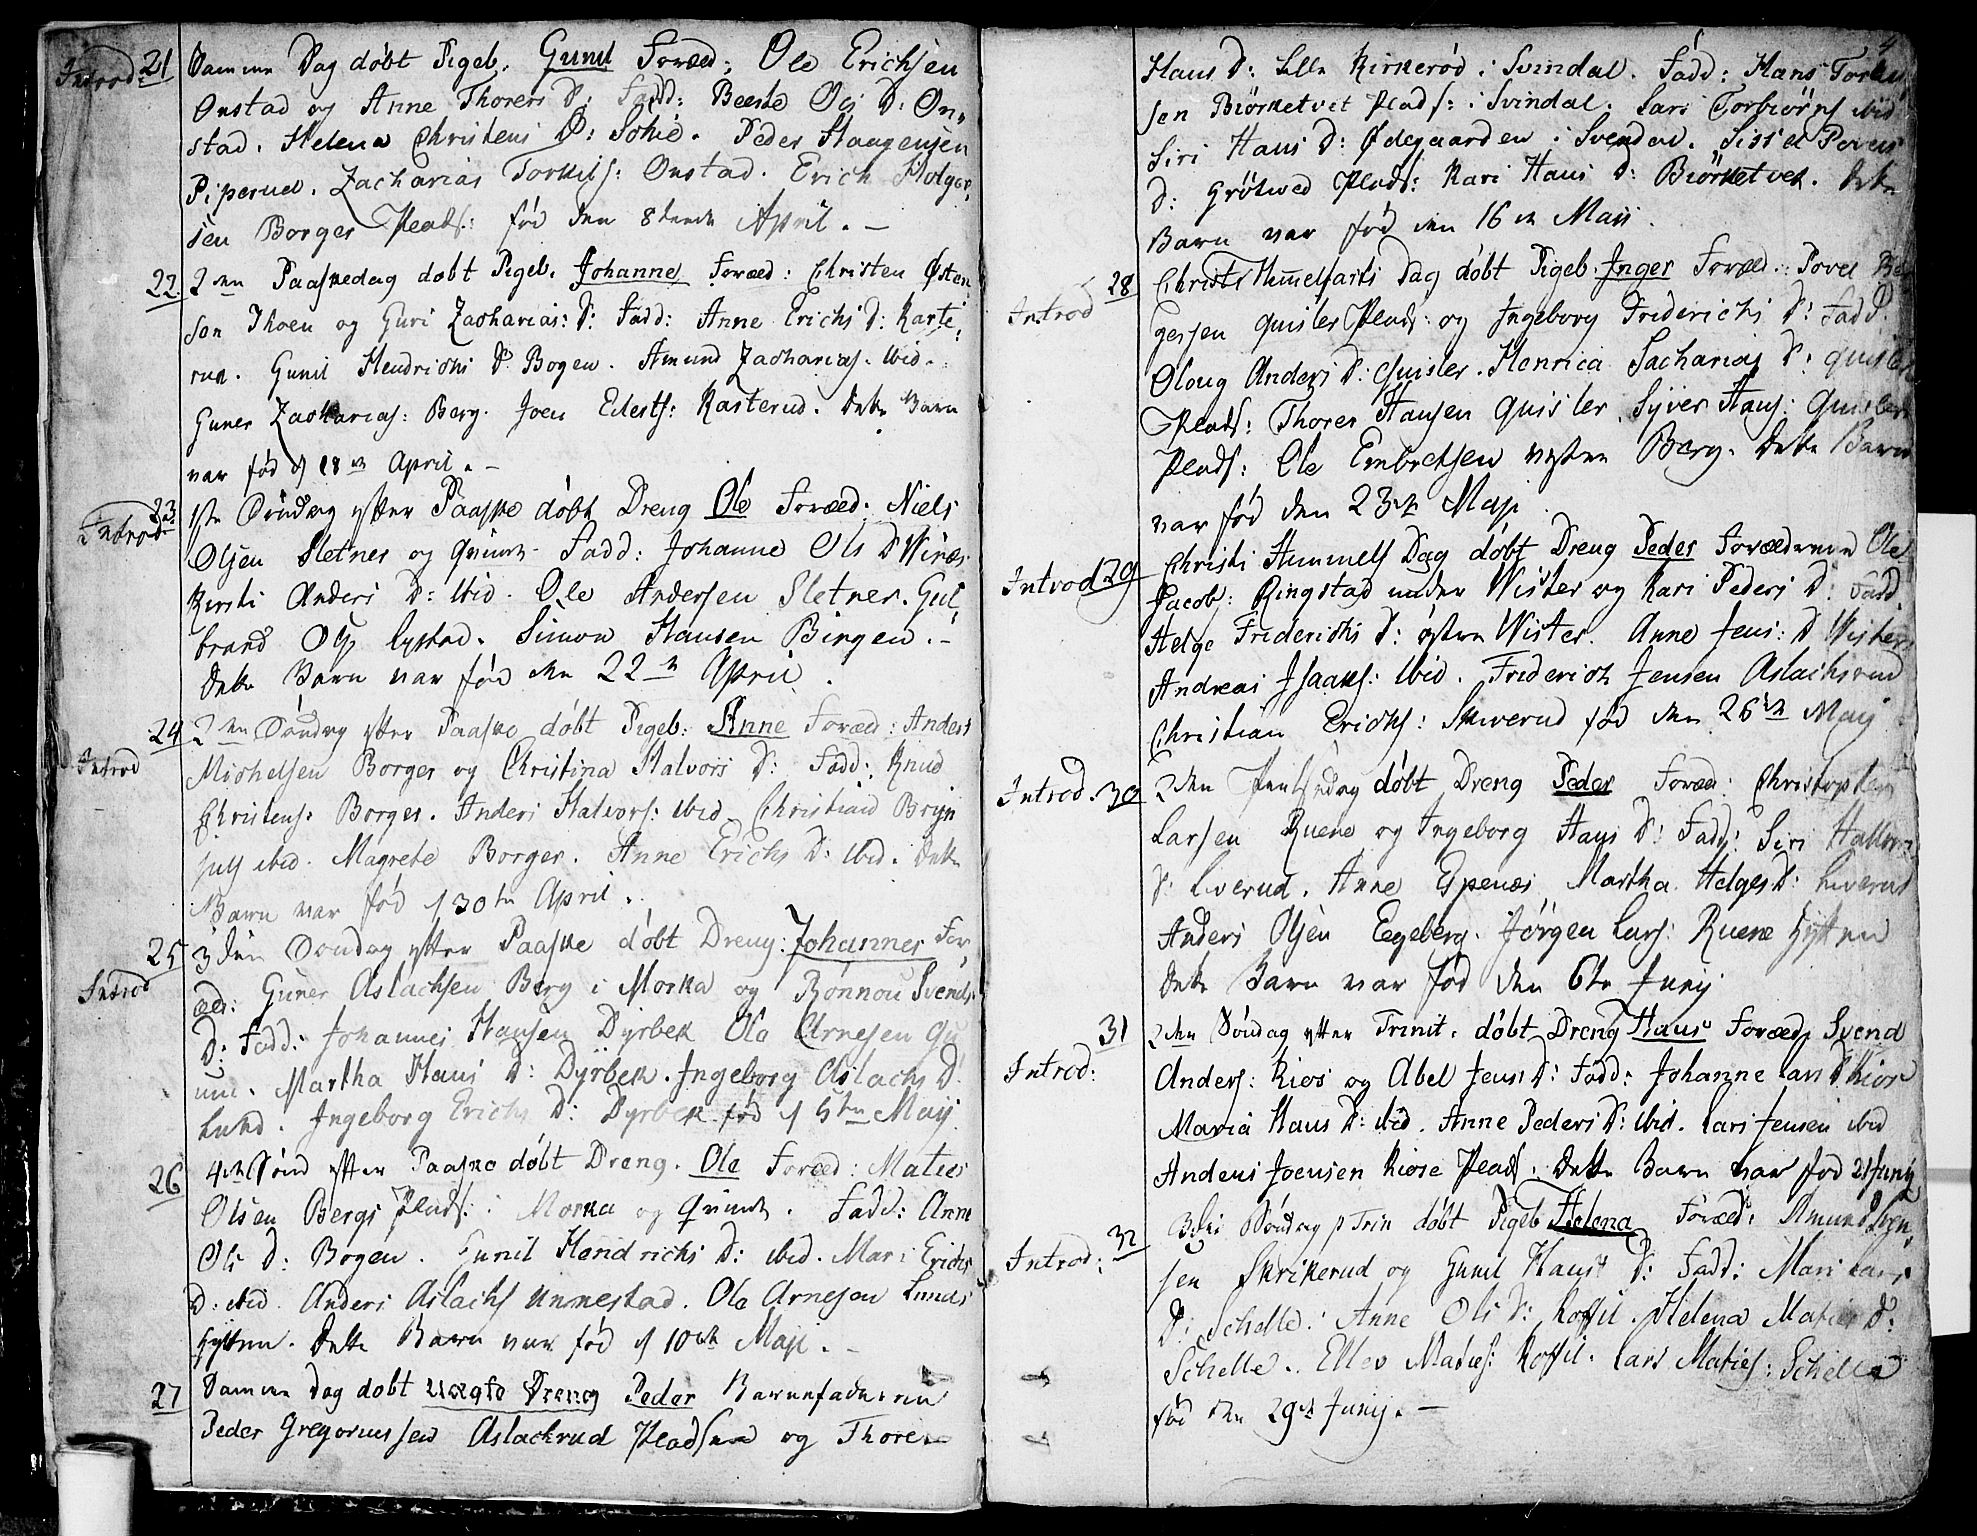 Introd. 21 Samme Dag døbt Pigeb. Gunil Foræld: Ole Erichsen
Onstad og Anne Thorers D: Fadd: Beeate Ols D: On-
stad. Helena Christens D: Sohie. Peder Haagensen
Piperud. Zacharias Torkils: Onstad. Erich Holger-
sen Borger Plads: fød den 8tende April. -
22 2den Paaskedag døbt Pigeb. Johanne Foræld: Christen Østen-
sen og Guri Zacharias: D: Fadd: Anne Erichs D: Karte-
rud. Gunil Hendrichs D: Bogen. Amund Zacharias: ibid.
Guner Zacharias: Berg. Joen Kasterud. dette Barn
var fød d 18de April. -
23 Introd. 1ste Søndag efter Paaske døbt Dreng Ole Foræld: Niels
Olsen Sletner og qvinde. Fadd: Johanne Ols D
Kirsti Anders D: ibid. Ole Andersen Sletner. Gul-
brand Ols: Simon Hansen Bingen. -
dette Barn var fød den 22de April.
24 Introd 2den Søndag efter Paaske døbt Pigeb: Anne Foræld: Anders
Michelsen Borger og Christina Halvors D: Fadd: Knud
Christens: Borger. Anders Halvors: ibid. Christian Bryn
ibid. Magrete Borger. Anne Erichs D: ibid. dette
Barn var fød d 30te April.
25 Introd 3die Søndag efter Paaske døbt Dreng: Johannes For-
æld: Guner Aslachsen Berg i Morka og Rønnou Svends
D: Fadd: Johannes Hansen Dyrbek Ole Arnesen
Martha Hans D: Dyrbek. Ingeborg Aslachs D.
Lund. Ingeborg Erichs D: Dyrbek fød d 5te Maij
26 4de Sønd efter Paaske døbt Dreng. Ole Foræld: Maties
Olsen Bergs Plads: i Morka og qvinde. Fadd: Anne
Ols D: Bogen. Gunil Hendrichs D: ibid. Mari Erichs
D: ibid. Anders Aslachs Unnestad. Ole Arnesen Lunds
hytten. dette Barn var fød d 10de Maji. -
27 Samme dag døbt uægte Dreng Peder Barnefaderen
Peder Gregoriussen Aslackrud Pladsen og Thore
4
Hans D: Lille Kirkerød i Svindal. Fadd: Hans Torkel
sen Biørketvet Plads: i Svindal. Lars Torbiørns ibid
Siri Hans D: Ødegaarden i Svendal. Sissel Povels
D: Grøtved Plads: Kari Hans D: Biørketvet. dette
Barn var fød den 16de Maii.
Introd 28 Christi Himmelfarts Dag døbt Pigeb. Inger Foræld: Povel
gersen quisler Plads: og Ingeborg Friderichs D: Fadd:
Oloug Anders D: quisler. Henrica Sacharias D: quisler
Plads: Thorer Hansen quisler. Syver Hans: quisler
Plads: Ole Embretsen Berg. dette Barn
var fød den 23de Maji.
Introd 29 Christi Himmels Dag døbt Dreng Peder Forældrene Ole
Jacobs: Ringstad under Wister og Kari Peders D: Fadd.
Helge Friderichs D: østen Wister. Anne Jens: D Wister
Andreas Isaaks: ibid. Friderich Jensen Aslachsrud
Christian Erichs: Skiverud fød den 26de Maij
Introd. 30 2den Pintsedag døbt Dreng Peder Foræld: Christopher
Larsen Ruene og Ingeborg Hans D: Fadd: Siri Halvors
D: Liverud. Anne Espenæs Martha Helges D: Liverud
Anders Olsen Eegeberg. Jørgen Lars: Ruene hytten
dette Barn var fød den 6te Junij
31 Introd: 2den Søndag efter Trinit: døbt Dreng Hans Foræld: Svend
Anders: Kios og Abel Jens: D: Fadd: Johanne Lars D Kios
Maria Hans D: ibid. Anne Peders D: ibid. Lars Jensen ibid
Anders Joensen Kiose Plads. dette Barn var fød 21 Junij
32 Introd: 3die Søndag p Trin døbt Pigeb Helena Foræld: Amund Sven-
sen Skrikerud og Gunil Hans D: Fadd: Mari Lars
D: Schelle. Anne Ols D: Koffil. Helena Maties D:
Schelle. Ellev Maties: Koffil. Lars Maties: Schelle
fød den 29de Junij. -